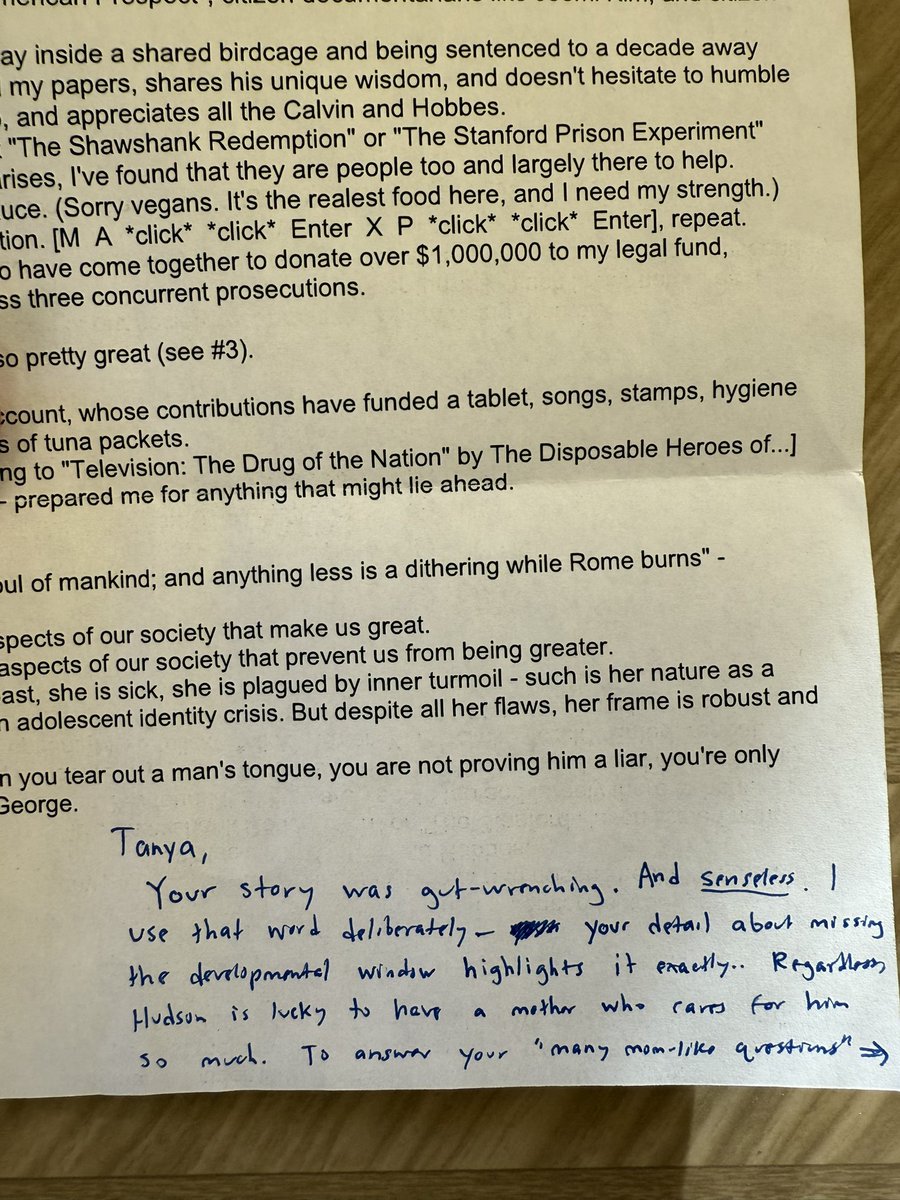 ay inside a shared birdcage and being sentenced to a decade away
my papers, shares his unique wisdom, and doesn't hesitate to humble
, and appreciates all the Calvin and Hobbes.
"The Shawshank Redemption" or "The Stanford Prison Experiment"
rises, I've found that they are people too and largely there to help.
uce. (Sorry vegans. It's the realest food here, and I need my strength.)
tion. [M A *click* *click* Enter X P *click* *click* Enter], repeat.
o have come together to donate over $1,000,000 to my legal fund,
ss three concurrent prosecutions.
so pretty great (see #3).
ccount, whose contributions have funded a tablet, songs, stamps, hygiene
s of tuna packets.
ng to "Television: The Drug of the Nation" by The Disposable Heroes of...]
- prepared me for anything that might lie ahead.
oul of mankind; and anything less is a dithering while Rome burns" -
spects of our society that make us great.
aspects of our society that prevent us from being greater.
ast, she is sick, she is plagued by inner turmoil - such is her nature as a
n adolescent identity crisis. But despite all her flaws, her frame is robust and
n you tear out a man's tongue, you are not proving him a liar, you're only
George.
Tanya,
Your story was gut-wrenching. And senseless. I
use that word deliberately - your detail about missing
the developmental window highlights it exactly.. Regardless,
Hudson is lucky to have a mother who cares for him
so much. To answer your "many mom-like questions" →